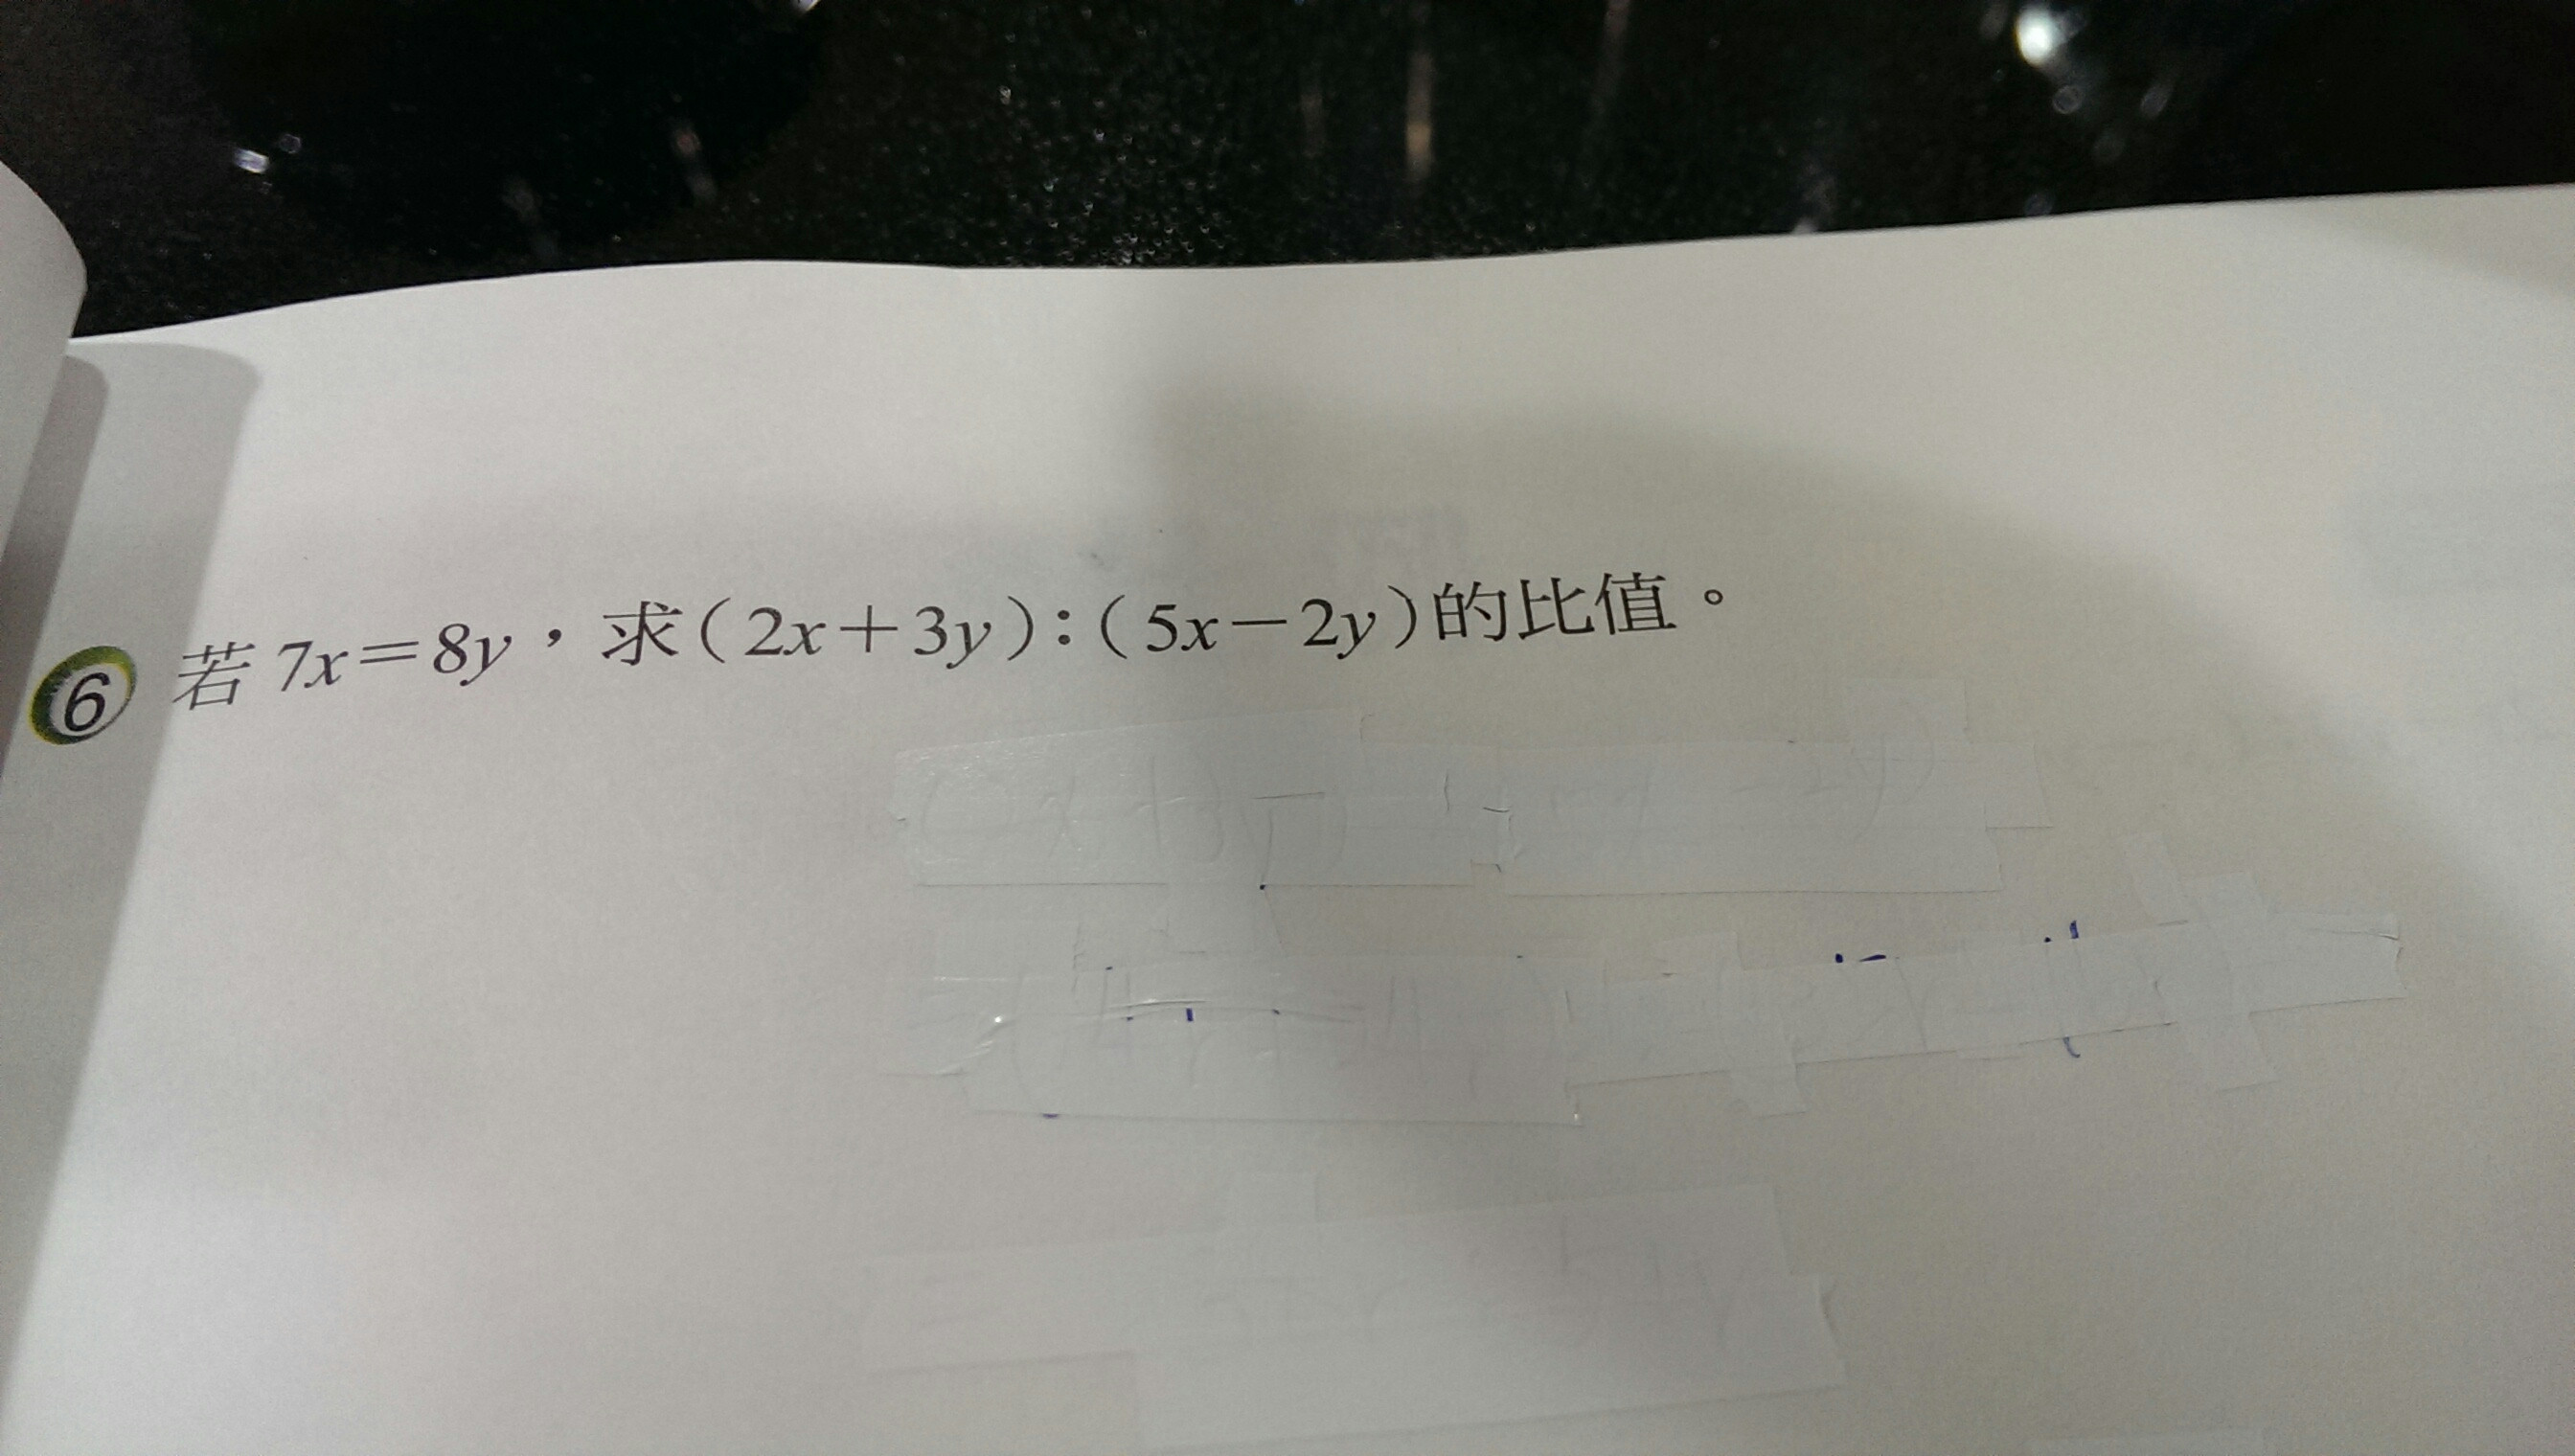 6 若 7x=8y，求(2x+3y):(5x-2y)的比值。